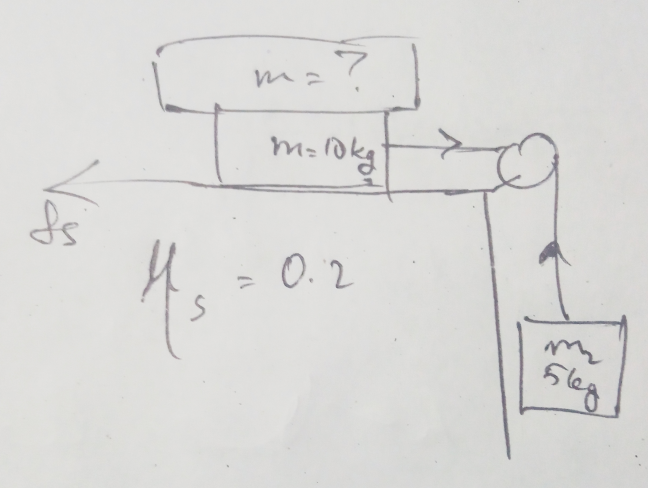 m = ?
m = 10 kg
fs
μs = 0.2
m2
5 kg